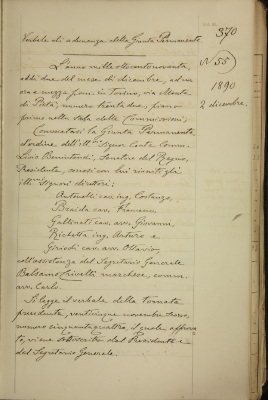 370
Verbale di adunanza della Giunta Permanente
N° 55
1890
2 dicembre.
L'anno mille ottocentonovanta,
addì due del mese di dicembre, ad un'
ora e mezza pom. in Torino, via Monte
di Pietà, numero trentadue, piano
primo nella sala delle Commissioni;
Convocatasi la Giunta Permanente
d'ordine dell'Ill.mo Signor Conte Comm.
Livio Benintendi, Senatore del Regno,
Presidente, sonosi con lui riuniti gli
ill.mi Signori direttori;
Antonelli cav. ing. Costanzo,
Benida cav.
Gallenati cav. avv. Giovanni,
Ricchetta ing. Arturo e
Giriodi cav. avv. Ottavio,
coll'assistenza del Segretario Generale
Balsamo Crivelli marchese, comm.
avv. Carlo.
Si legge il verbale della tornata
precedente, ventinove novembre scorso,
numero cinquantaquattro, il quale appro
vato, viene sottoscritto dal Presidente e
dal Segretario Generale.